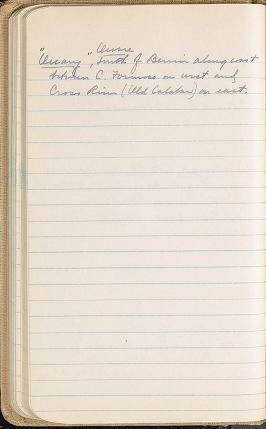 Aware
"Ouary", South of Benin along coast
between C. Formoso on west and
Cross River (Old Calabar) on east.